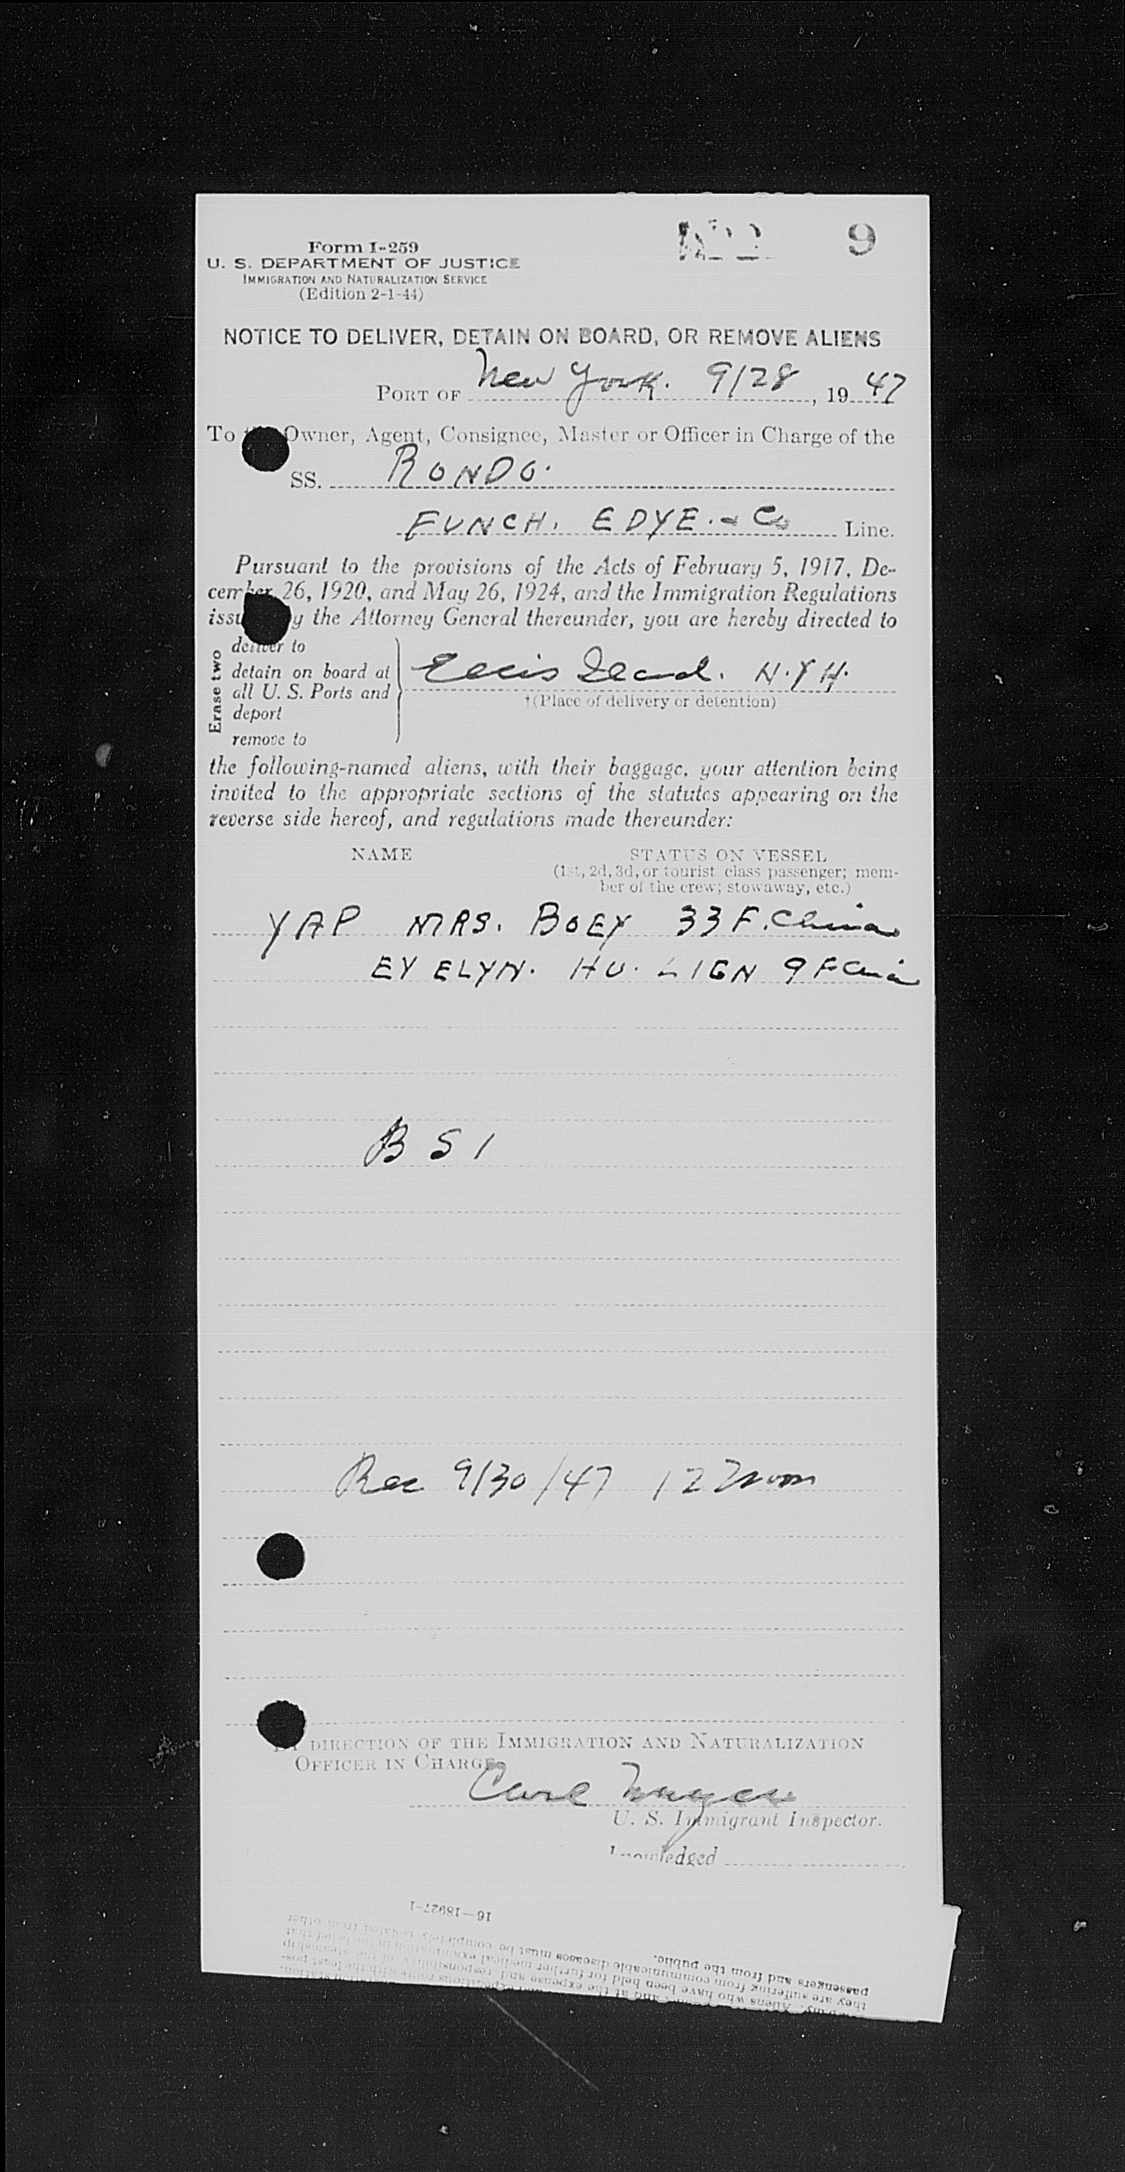 9
Form I-259
U. S. DEPARTMENT OF JUSTICE
IMMIGRATION AND NATURALIZATION SERVICE
(Edition 2-1-44)
NOTICE TO DELIVER, DETAIN ON BOARD, OR REMOVE ALIENS
PORT OF New York. 9/28, 1947
To Owner, Agent, Consignee, Master or Officer in Charge of the
SS. RONDO.
FUNCH. EDYE. & Co Line.
Pursuant to the provisions of the Acts of February 5, 1917, De-
cember 26, 1920, and May 26, 1924, and the Immigration Regulations
by the Attorney General thereunder, you are hereby directed to
Erase two
deliver to
detain on board at
all U. S. Ports and
deport
remove to
Ellis Island. N.Y.H.
†(Place of delivery or detention)
the following-named aliens, with their baggage, your attention being
invited to the appropriate sections of the statutes appearing on the
reverse side hereof, and regulations made thereunder:
NAME STATUS ON VESSEL
(1st, 2d, 3d, or tourist class passenger; mem-
ber of the crew; stowaway, etc.)
YAP MRS. BOEY 33 F. China
EVELYN. HU. LIGN 9 F China
BSI
Rec 9/30/47 12 Noon
DIRECTION OF THE IMMIGRATION AND NATURALIZATION
OFFICER IN CHARGE
Carl
U. S. Immigrant Inspector.
16—18927-1
they are suffering from communicable diseases must be completely isolated from other
passengers and from the public.